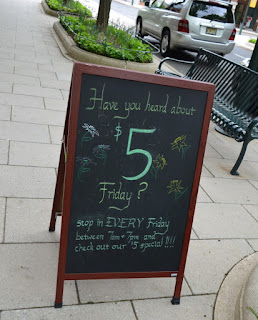 Have you heard about
$5
Friday?
stop in EVERY Friday
between 7am & 7pm and
check out our $5 special!!!!